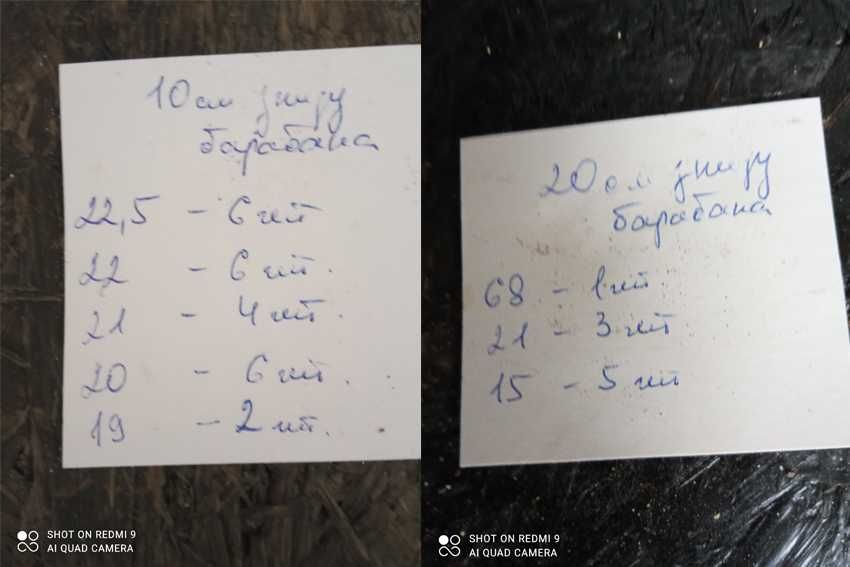 10 см знизу
барабана
22,5 - 6 шт
22 - 6 шт.
21 - 4 шт.
20 - 6 шт.
19 - 2 шт.
SHOT ON REDMI 9
AI QUAD CAMERA
20 см знизу
барабана
68 - 1 шт.
21 - 3 шт.
15 - 5 шт
SHOT ON REDMI 9
AI QUAD CAMERA